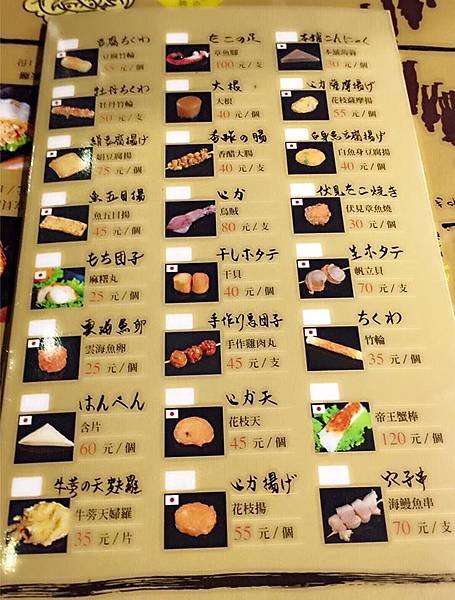 豆腐ちくわ
豆腐竹輪
55 元/個
たこの足
章魚腳
100 元/支
本舖こんにゃく
本舖蒟蒻
30 元/個
牡丹ちくわ
牡丹竹輪
50 元/支
大根
大根
40 元/個
いか薩摩揚げ
花枝薩摩揚
55 元/個
絹豆腐揚げ
絹豆腐揚
75 元/個
香酢の腸
香醋大腸
40 元/支
白身魚豆腐揚げ
白魚身豆腐揚
40 元/個
魚五目揚
魚五目揚
45 元/個
いか
烏賊
80 元/支
伏見たこ焼き
伏見章魚燒
30 元/個
もち団子
麻糬丸
25 元/個
干しホタテ
干貝
40 元/個
生ホタテ
帆立貝
70 元/支
雲海魚卵
雲海魚卵
25 元/個
手作り鳥団子
手作雞肉丸
45 元/支
ちくわ
竹輪
35 元/個
はんぺん
含片
60 元/個
いか天
花枝天
45 元/個
帝王蟹棒
120 元/個
牛蒡の天麩羅
牛蒡天婦羅
35 元/片
いか揚げ
花枝揚
55 元/個
穴子串
海鰻魚串
70 元/支